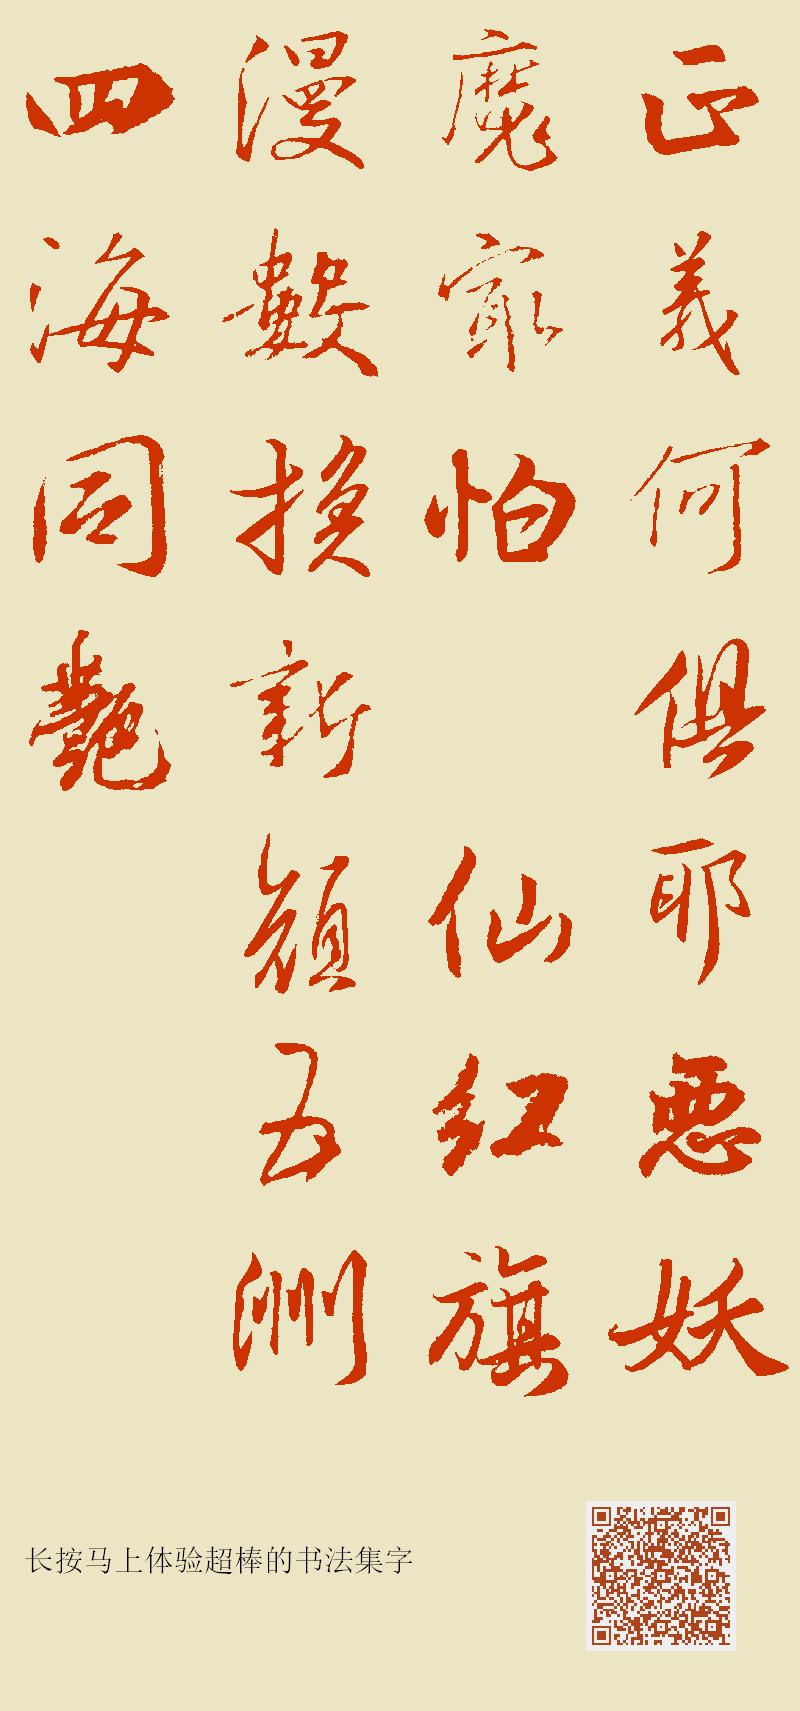 正義何俱耶惡妖
魔最怕 仙紅旗
漫數換新顏五洲
四海同艷
长按马上体验超棒的书法集字